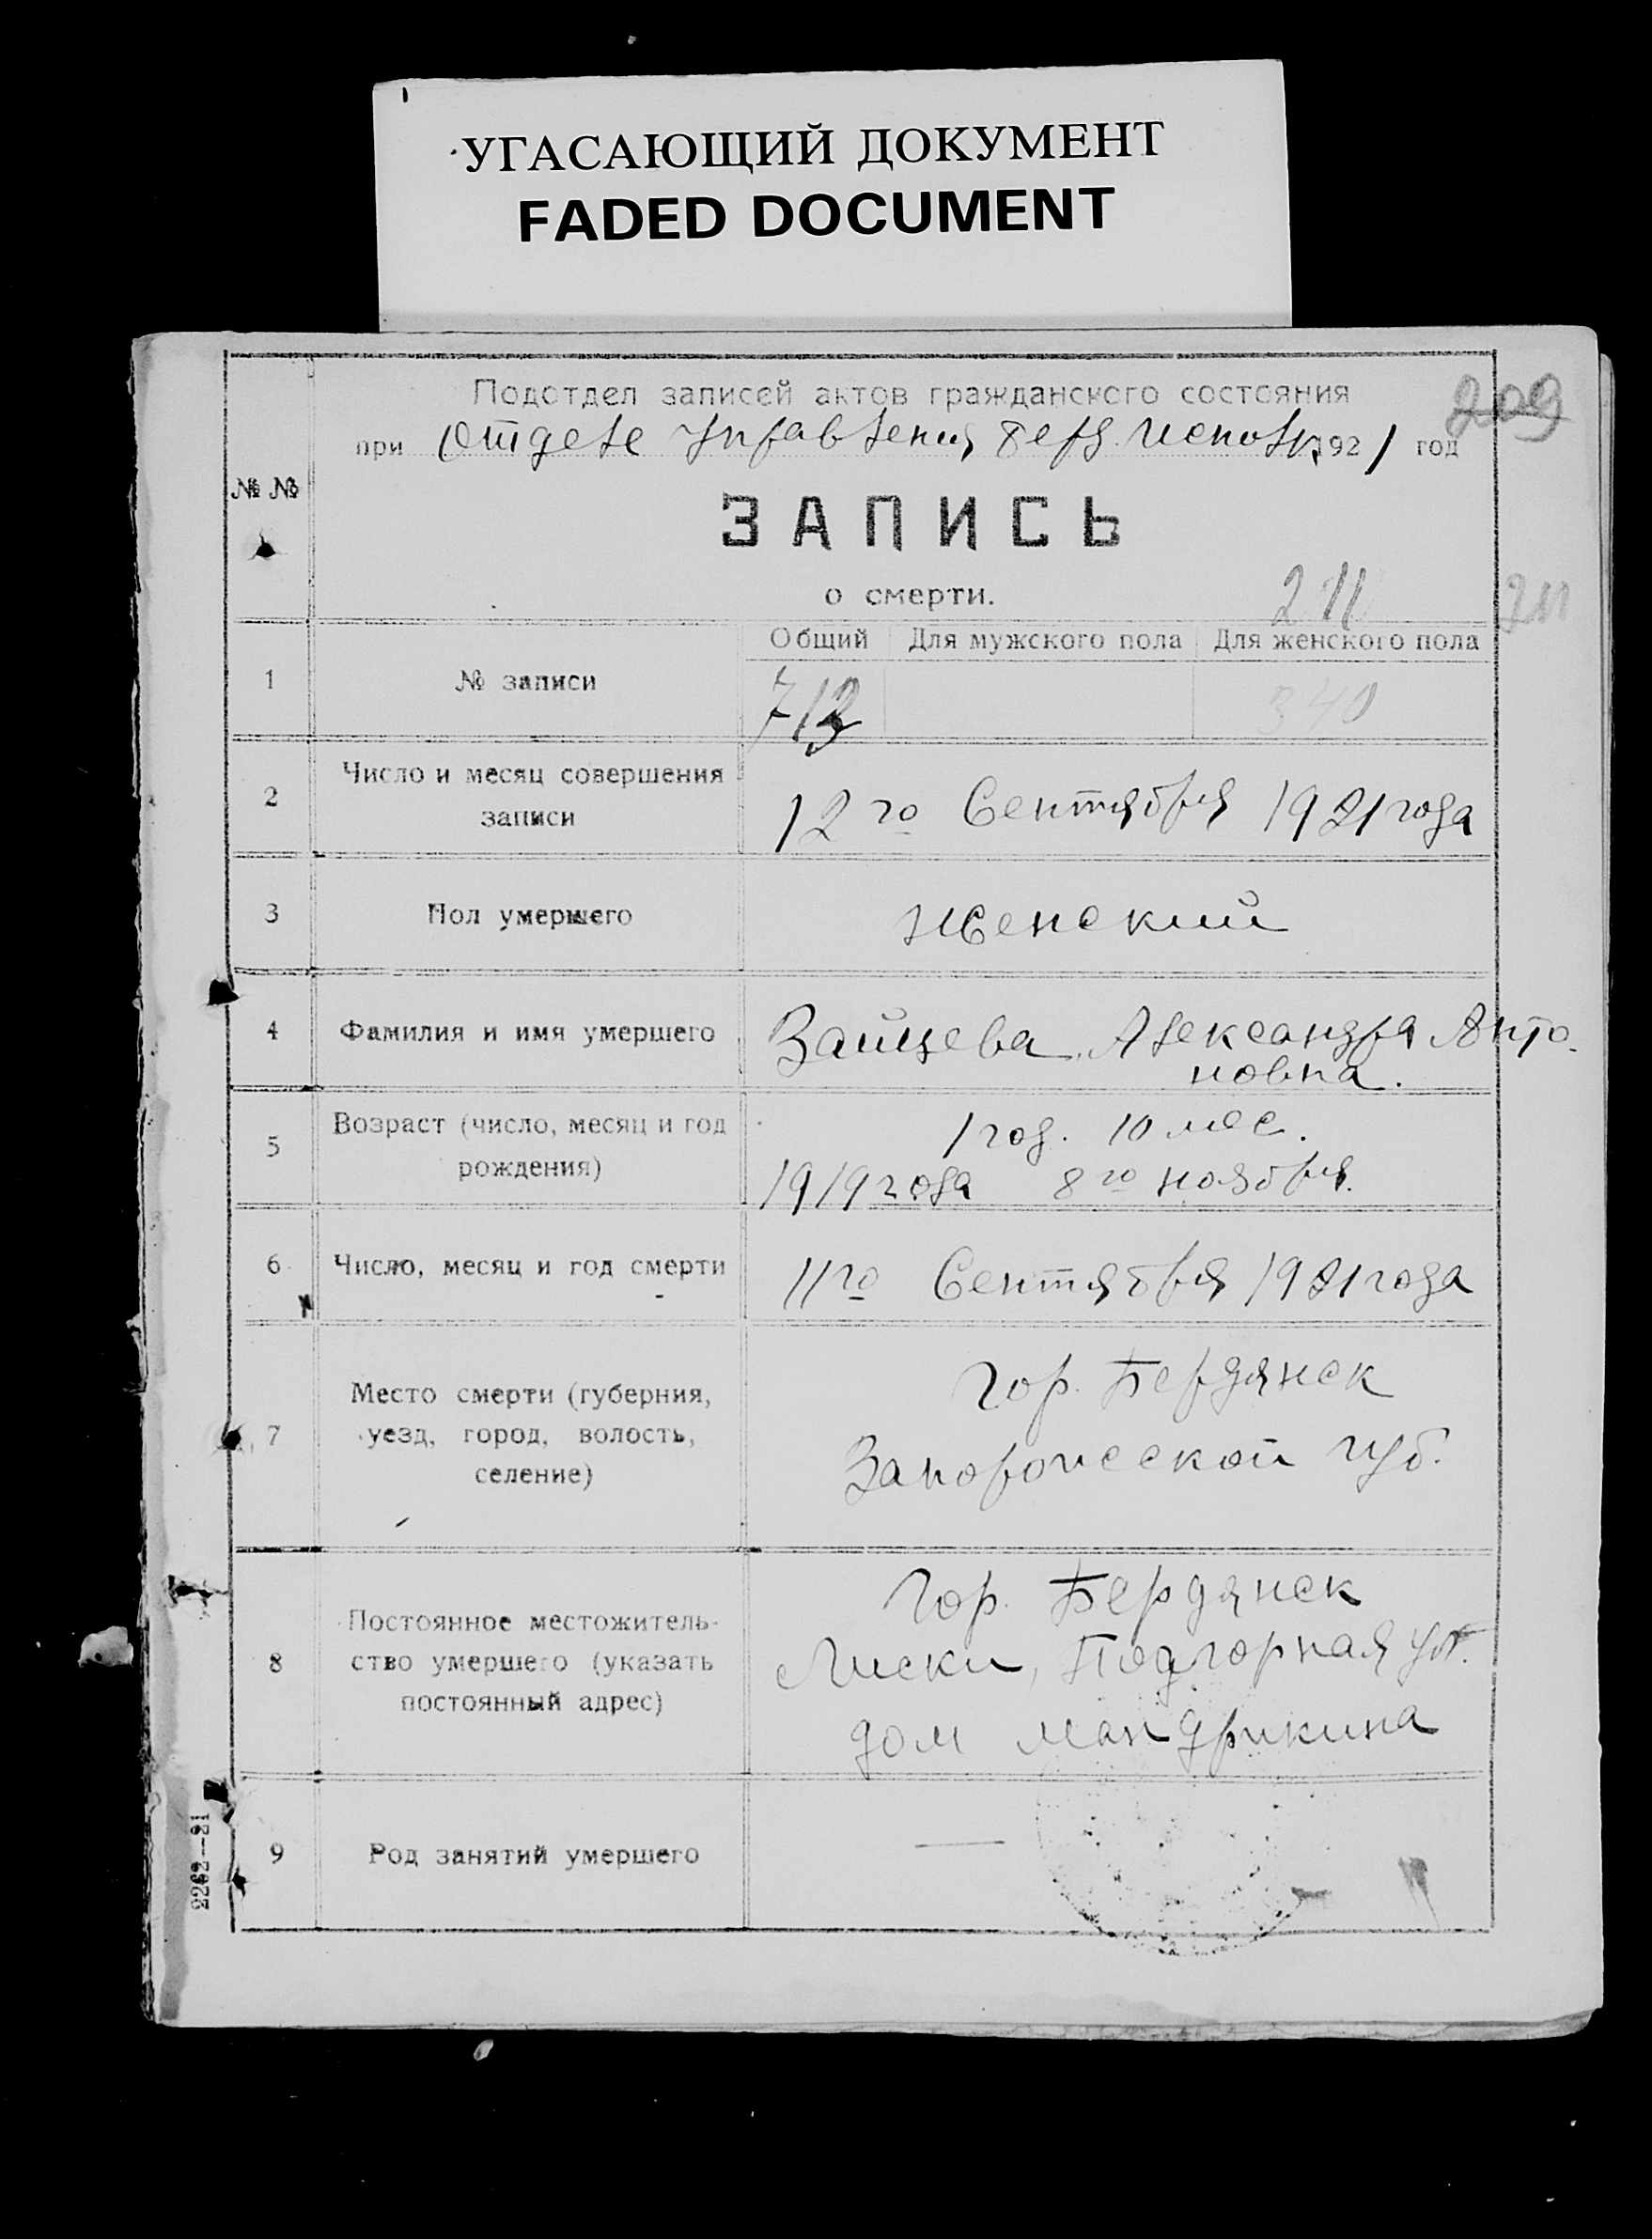 УГАСАЮЩИЙ ДОКУМЕНТ
FADED DOCUMENT
Подотдел записей актов гражданского состояния
209
при Отделе Управления Берд. Исполк. 1921 год
№ №
ЗАПИСЬ
о смерти.
211
211
Общий Для мужского пола Для женского пола
1 № записи 713 340
2 Число и месяц совершения
записи
12го Сентября 1921 года
3 Пол умершего Женский
4 Фамилия и имя умершего Зайцева Александра Анто-
новна.
5 Возраст (число, месяц и год
рождения)
1 год. 10 мес.
1919 года 8го ноября.
6 Число, месяц и год смерти 11го Сентября 1921 года
7 Место смерти (губерния,
уезд, город, волость,
селение)
Гор. Бердянск
Запорожской губ.
8 Постоянное местожитель-
ство умершего (указать
постоянный адрес)
Гор. Бердянск
Лиски, Подгорная ул.
дом Мандрикина
9 Род занятий умершего —
2262—21